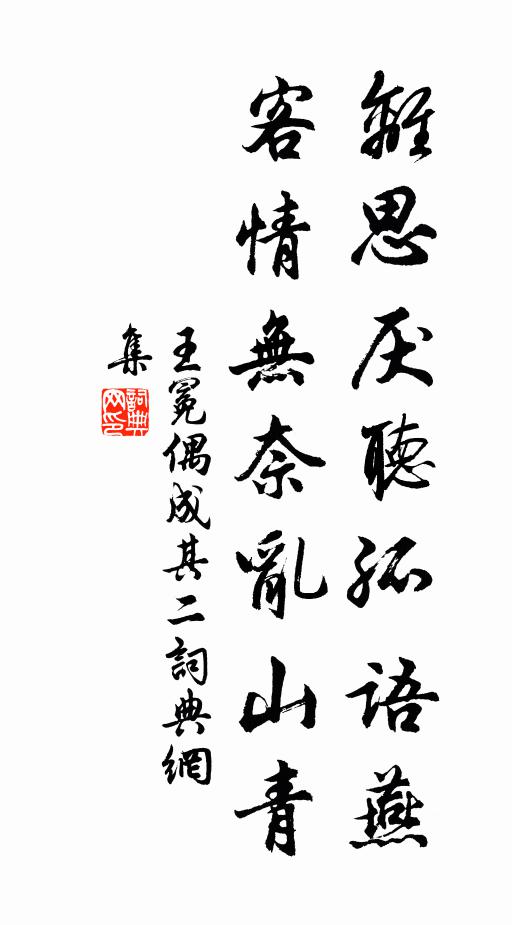 離思厌聽孤語燕
客情無奈亂山青
王冕偶成其二詞典網
集
詞典
网印